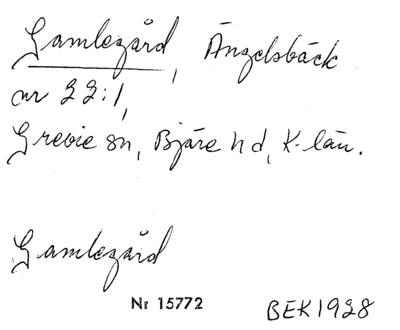 Gamlegård, Ängelsbäck
nr 22:1,
Grevie sn, Bjäre hd, K-län.
Gamlegård
Nr 15772
BEK1928